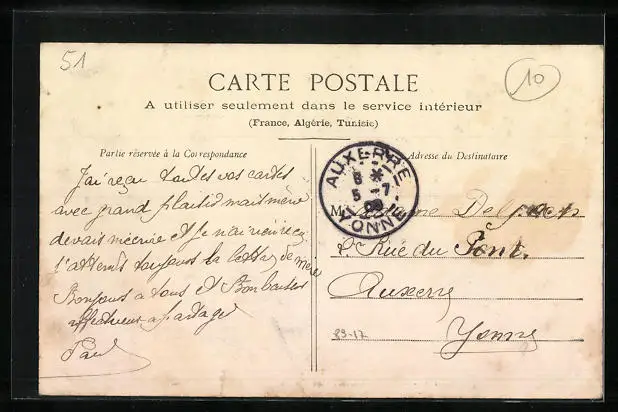 51
10
CARTE POSTALE
A utiliser seulement dans le service intérieur
(France, Algérie, Tunisie)
Partie réservée à la Correspondance
Adresse du Destinataire
J'ai reçu toutes vos cartes
avec grand plaisir mais mère
devais m'écrire et je n'ai rien reçu
j'attends toujours la lettre de mère
Bonjour a tous et Bon baisers
affectueux a partager
Paul
AUXERRE
5 -7
YONNE
Rue du Pont
Auxerre
Yonne
89-17